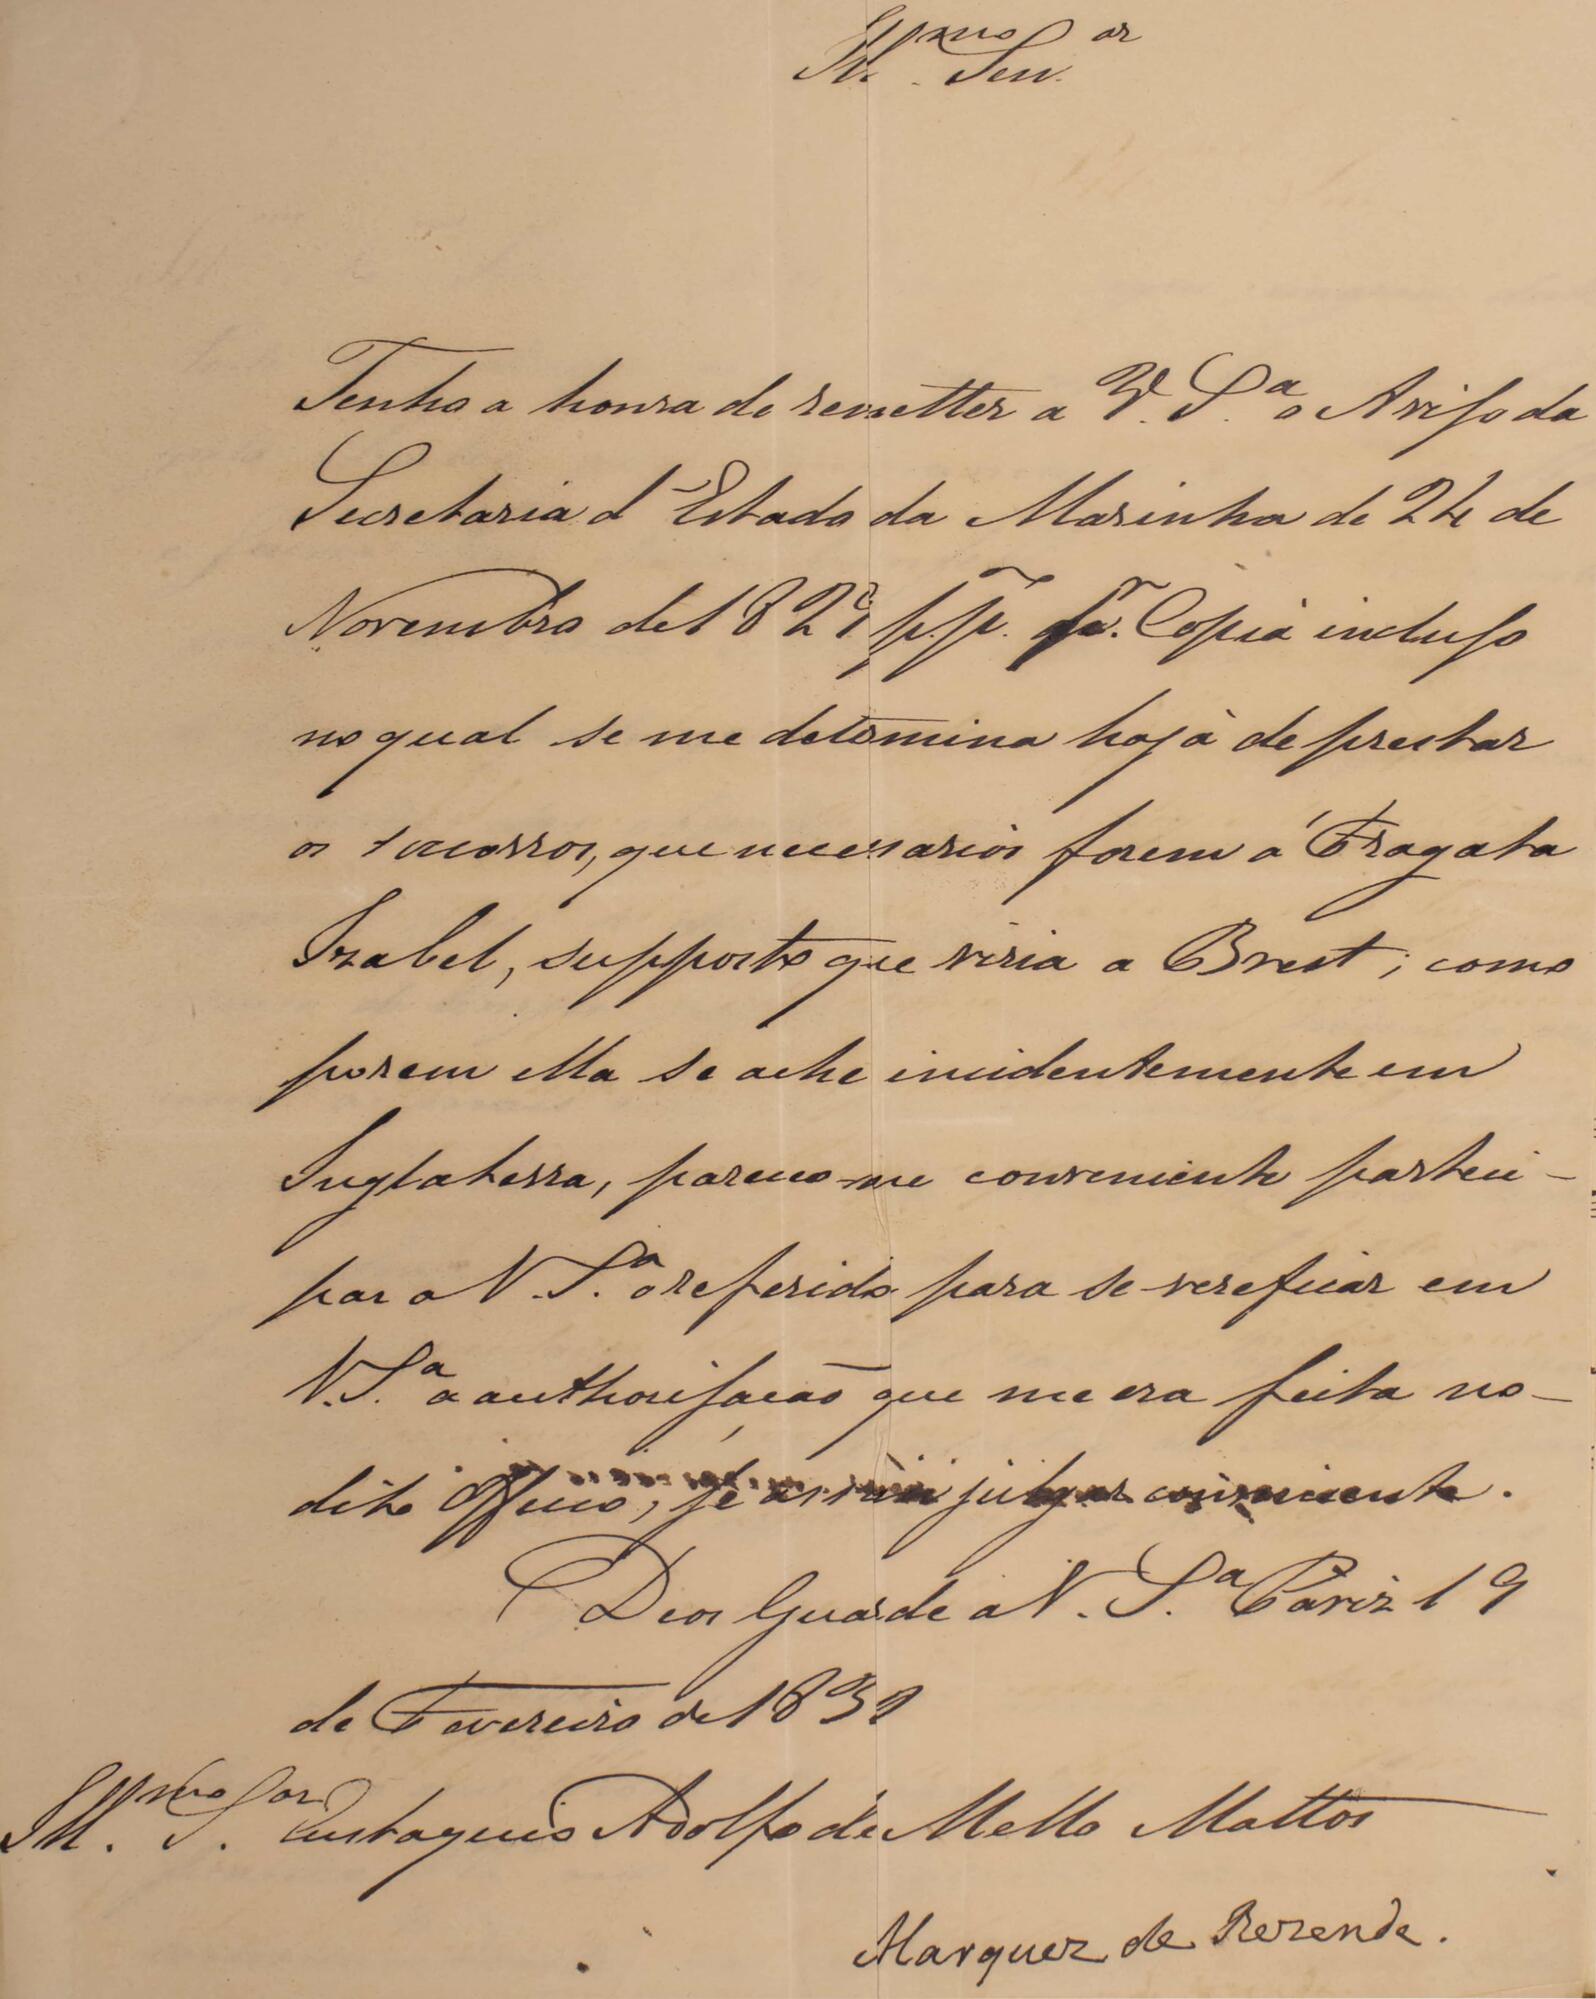 Ill.mo Sen.or
Tenho a honra de remetter a V. S.a o Aviso da
Secretaria d'Estado da Marinha de 24 de
Novembro de 1829 p.p. por Copia incluso
no qual se me determina haja de prestar
os socorros, que necessarios forem á Fragata
Izabel, supposto que viria a Brest; como
porem ella se ache incidentemente em
Inglaterra, pareceo-me conveniente partici-
par a V. S.a o referido para se verefiear em
V. S.a a authorisacão que me era feita no-
dito Officio, se assim julgar conveniente.
Deos Guarde a V. S.a Pariz 19
de Fevereiro de 1830
Ill.mo S.or Eustaquio Adolfo de Mello Mattos
Marquez de Rezende.